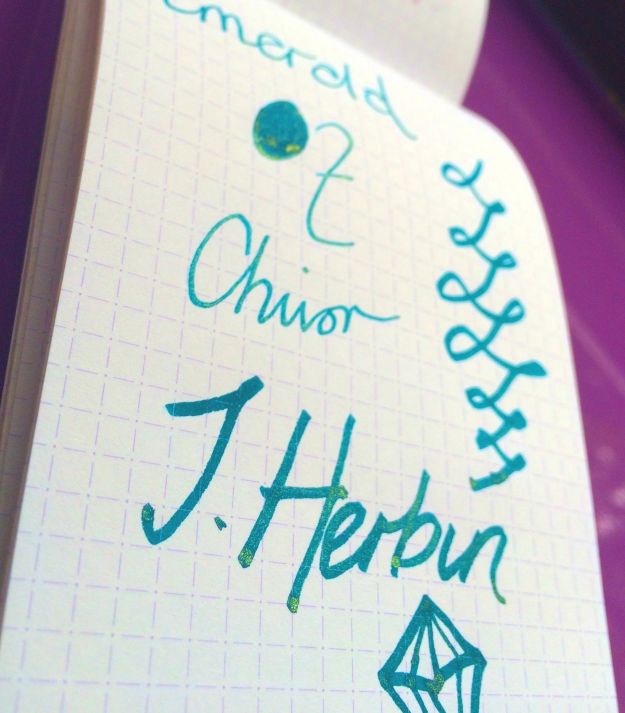 Emerald
of
Chivor
J. Herbin